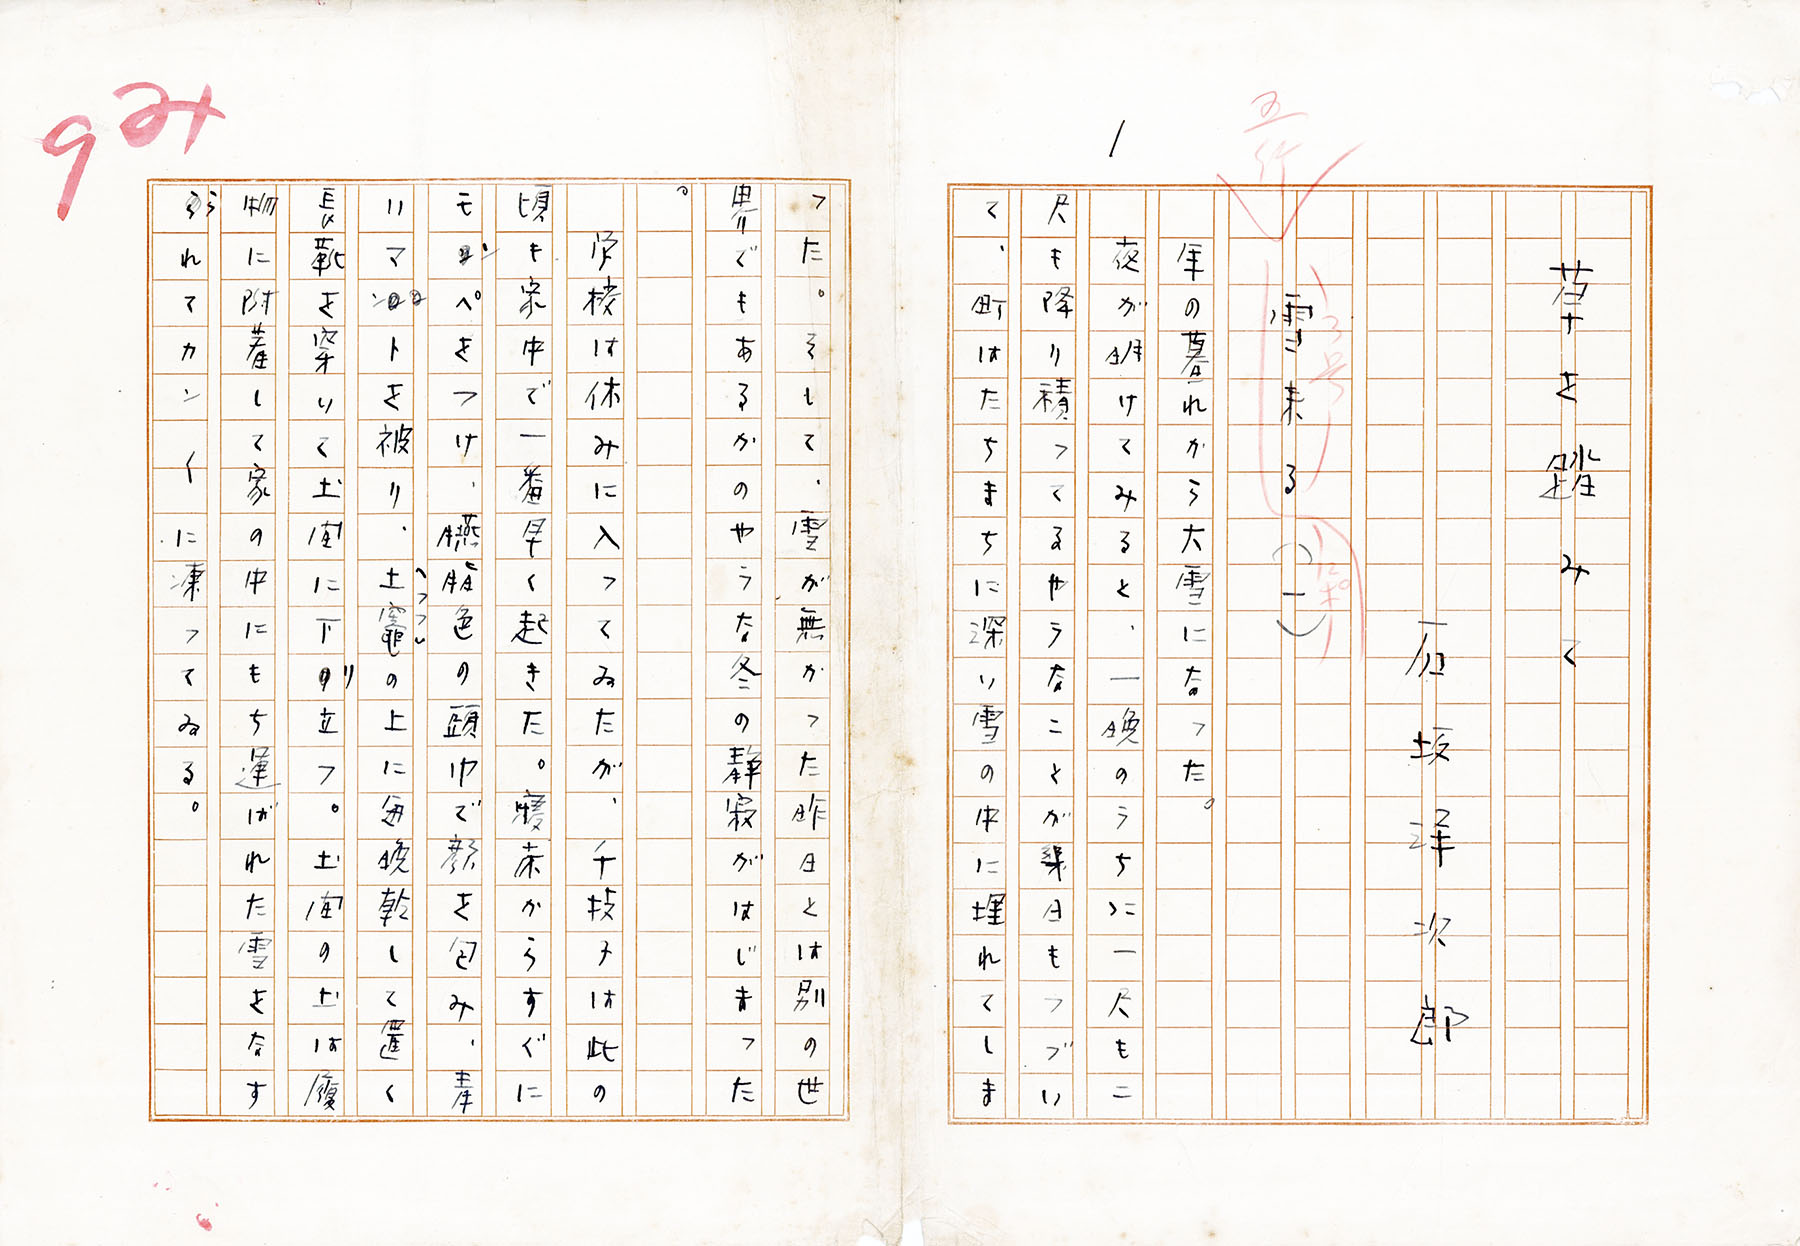 1
草を踏みて
石坂洋次郎
五行
3号
雪来る（一）
年の暮れから大雪になつた。
夜が明けてみると、一晩のうちに一尺も二
尺も降り積つてるやうなことが幾日もつづい
て、町はたちまちに深い雪の中に埋れてしま
つた。そして、雪が無かつた昨日とは別の世
界でもあるかのやうな冬の静寂がはじまつた
。
学校は休みに入つてゐたが、千枝子は此の
頃も家中で一番早く起きた。寝床からすぐに
モンペをつけ、臙脂色の頭巾で顔を包み、妻
ハマントを被り、土竈の上に毎晩乾して置く
ヘツツい
長靴を穿いて土間に下り立つ。土間の土は履
物に附着して家の中にもち運ばれた雪をなす
られてカンカンに凍つてゐる。